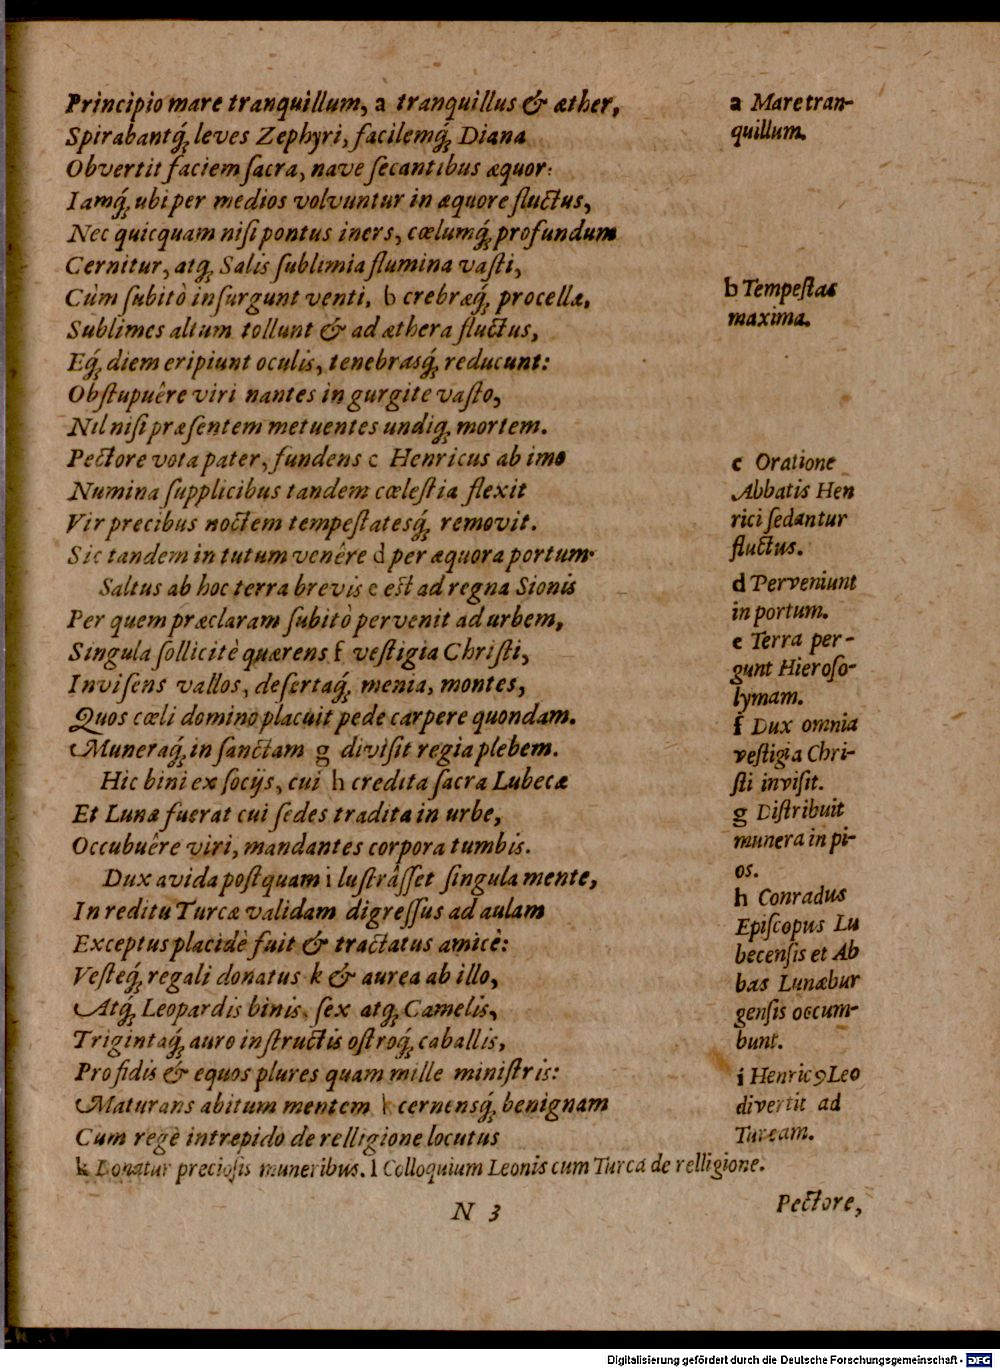 Principio mare tranquillum, a tranquillus & æther,
Spirabantq́; leves Zephyri, facilemq́; Diana
Obvertit faciem ſacra, nave ſecantibus æquor:
Iamq́; ubi per medios volvuntur in æquore fluctus,
Nec quicquam niſi pontus iners, cœlumq́; profundum
Cernitur, atq; Salis ſublimia flumina vaſti,
Cùm ſubitò inſurgunt venti, b crebræq́; procellæ,
Sublimes altum tollunt & ad æthera fluctus,
Eq́; diem eripiunt oculis, tenebrasq́; reducunt:
Obſtupuêre viri nantes in gurgite vaſto,
Nil niſi præſentem metuentes undiq; mortem.
Pectore vota pater, fundens c Henricus ab imo
Numina ſupplicibus tandem cœleſtia flexit
Vir precibus noctem tempeſtatesq́; removit.
Sic tandem in tutum venêre d per æquora portum.
Saltus ab hoc terra brevis e eſt ad regna Sionis
Per quem præclaram ſubitò pervenit ad urbem,
Singula ſollicitè quærens f veſtigia Chriſti,
Inviſens vallos, deſertaq́; mœnia, montes,
Quos cœli domino placuit pede carpere quondam.
Muneraq́; in ſanctam g diviſit regia plebem.
Hic bini ex ſocijs, cui h credita ſacra Lubecæ
Et Lunæ fuerat cui ſedes tradita in urbe,
Occubuêre viri, mandantes corpora tumbis.
Dux avida poſtquam i luſtrâſſet ſingula mente,
In reditu Turcæ validam digreſſus ad aulam
Exceptus placidè fuit & tractatus amicè:
Veſteq́; regali donatus k & aurea ab illo,
Atq́; Leopardis binis, ſex atq; Camelis,
Trigintaq́; auro inſtructis oſtroq́; caballis,
Profidis & equos plures quam mille miniſtris:
Maturans abitum mentem l cernensq́; benignam
Cum rege intrepido de relligione locutus
k Donatur precioſis muneribus. l Colloquium Leonis cum Turca de relligione.
a Mare tran-
quillum.
b Tempeſtas
maxima.
c Oratione
Abbatis Hen
rici ſedantur
fluctus.
d Perveniunt
in portum.
e Terra per-
gunt Hieroſo-
lymam.
f Dux omnia
veſtigia Chri-
ſti inviſit.
g Diſtribuit
munera in pi-
os.
h Conradus
Epiſcopus Lu
becenſis et Ab
bas Lunæbur
genſis occum-
bunt.
i Henricꝰ Leo
divertit ad
Turcam.
N 3
Pectore,
Digitalisierung gefördert durch die Deutsche Forschungsgemeinschaft - DFG